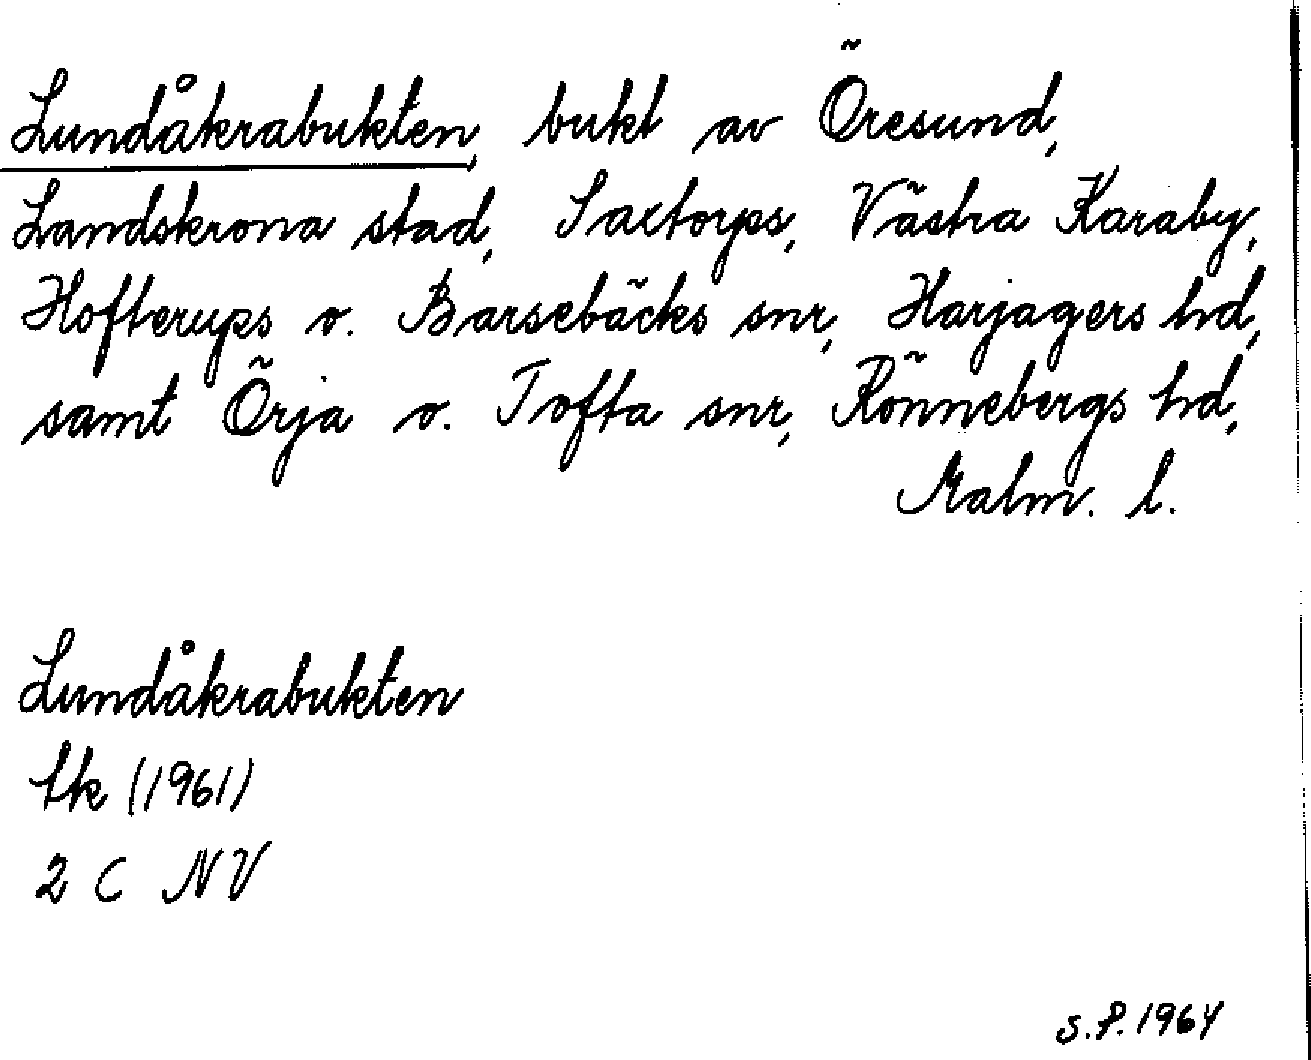 Lundåkrabukten, bukt av Öresund,
Landskrona stad, Saxtorps, Västra Karaby,
Hofterups o. Barsebäcks snr, Harjagers hd,
samt Örja o. Tofta snr, Rönnebergs hd,
Malm. l.
Lundåkrabukten
tk (1961)
2 C NV
S.P. 1964